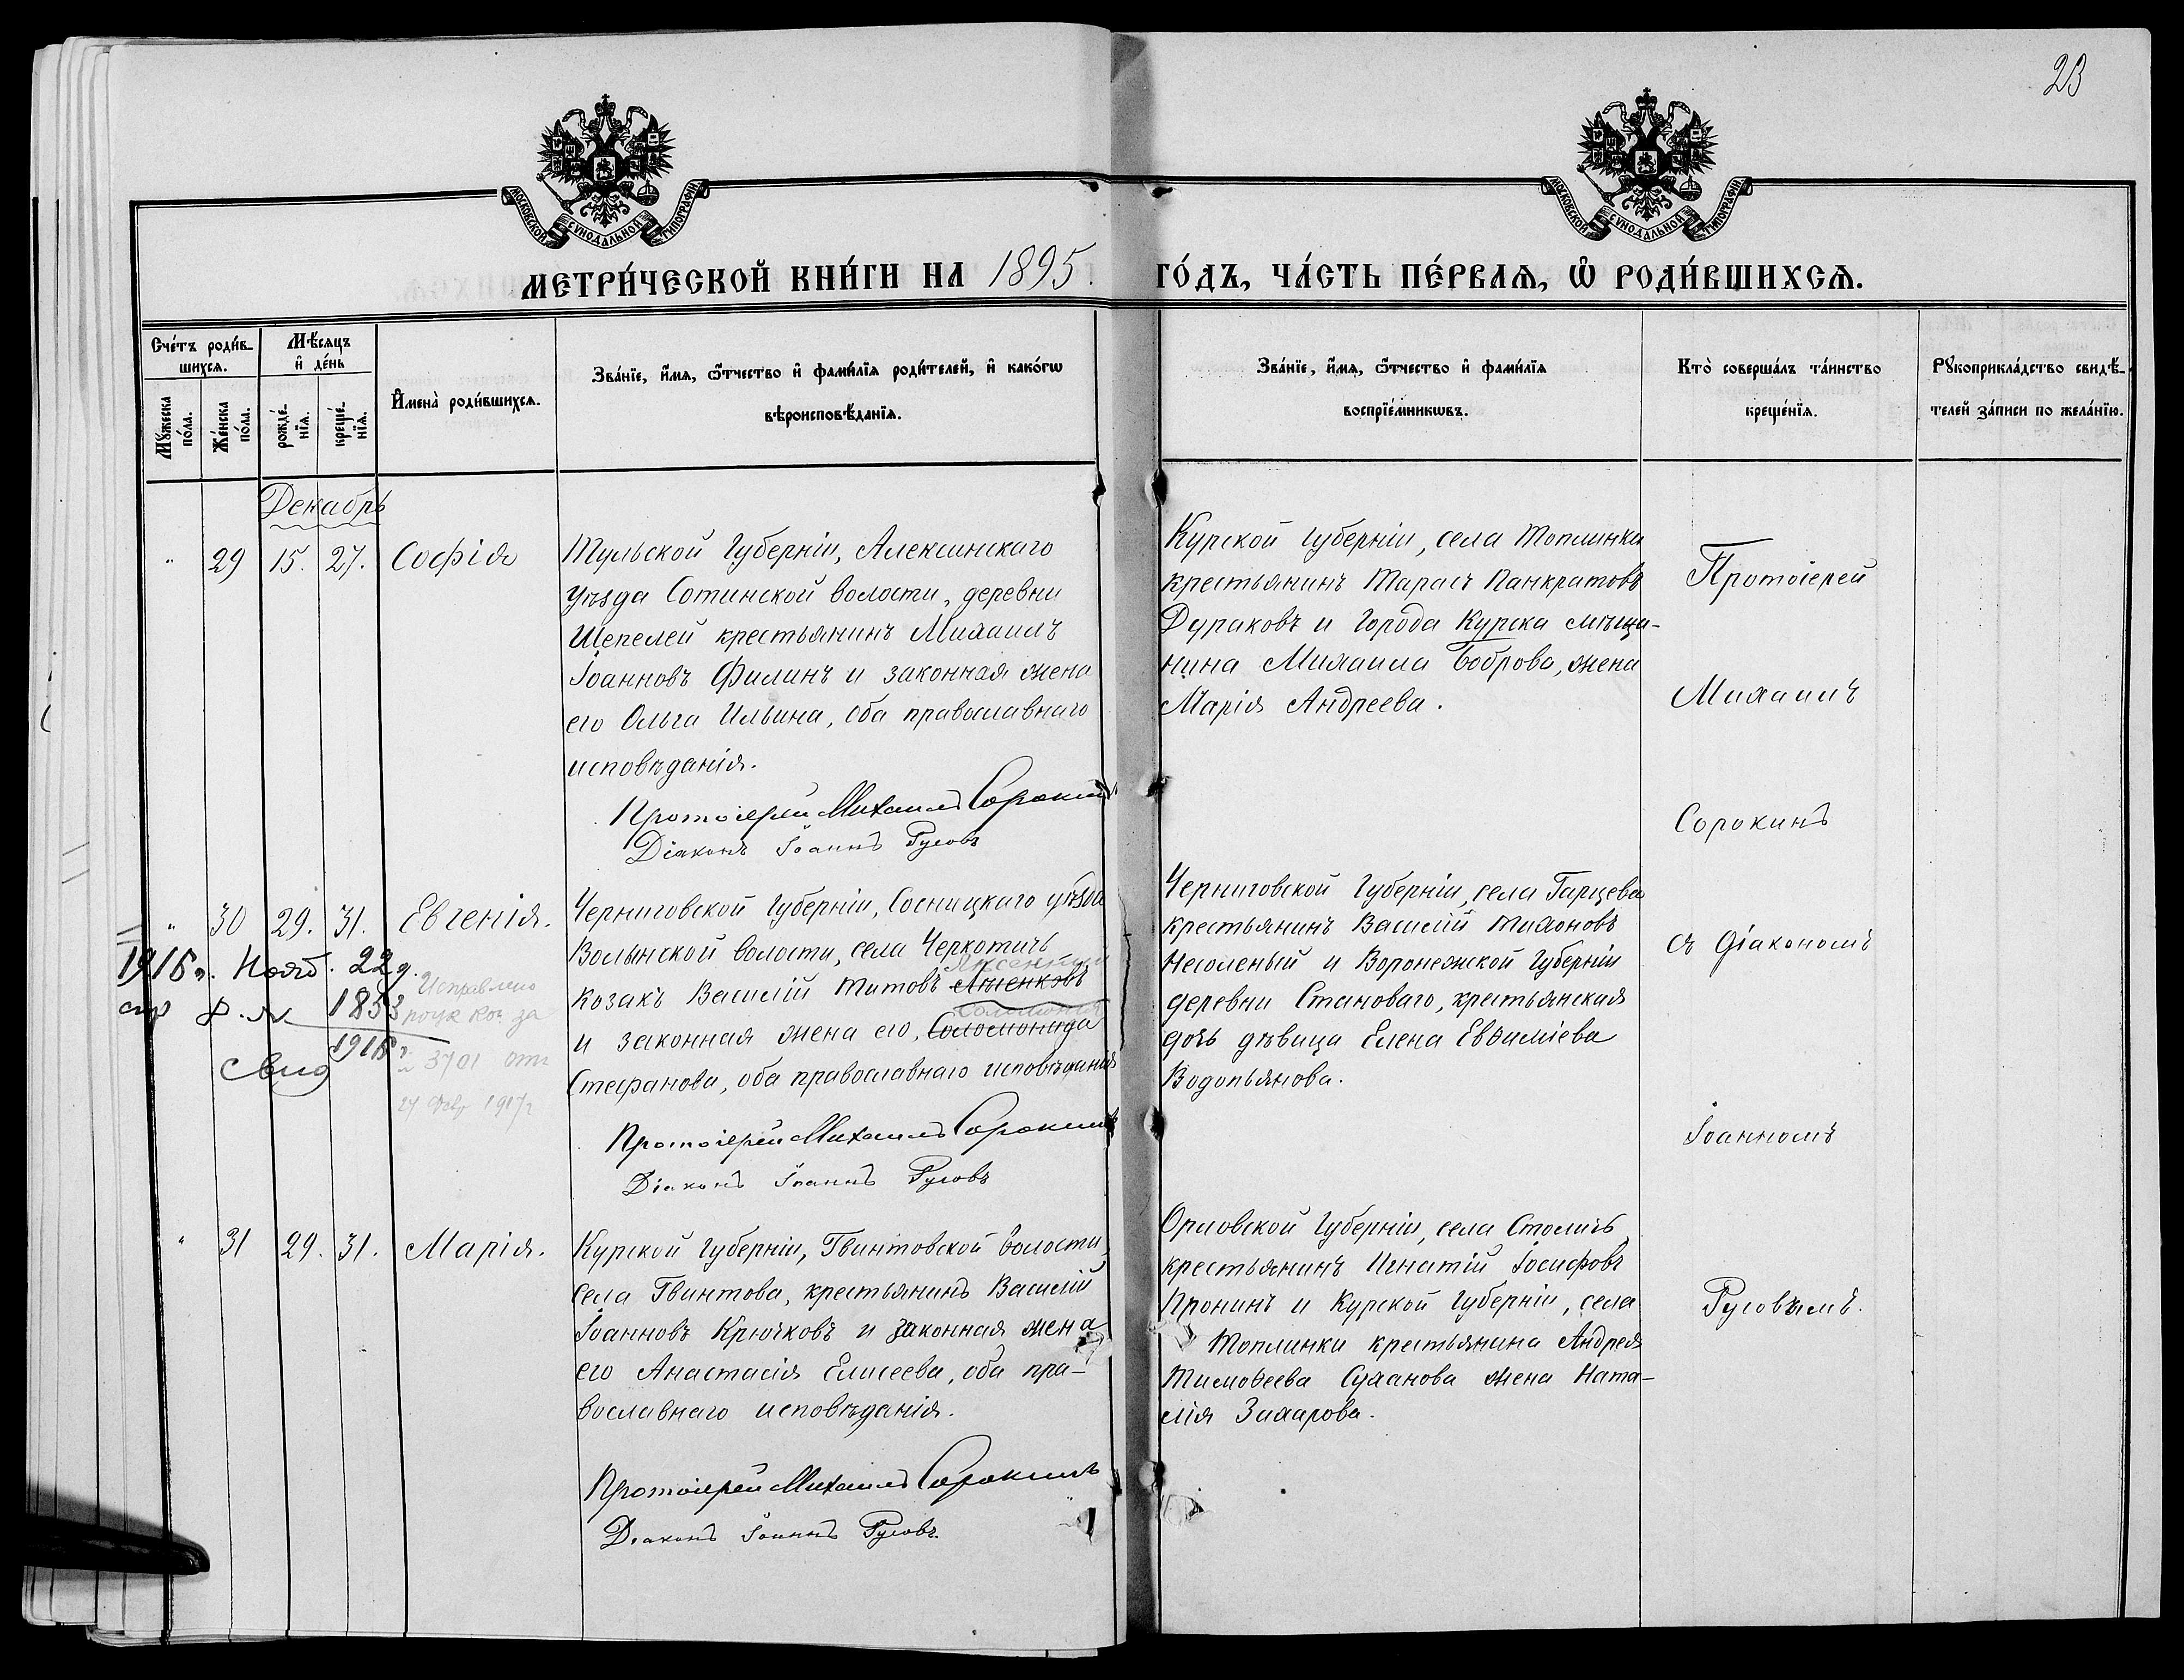 23
МОСКОВСКОЙ СѴНОДАЛЬНОЙ ТИПОГРАФІИ
МОСКОВСКОЙ СѴНОДАЛЬНОЙ ТИПОГРАФІИ
МЕТРИ́ЧЕСКОЙ КНИ́ГИ НА 1895. ГО́ДЪ, ЧА́СТЬ ПЕ́РВАѦ, Ѡ҆ РОДИ́ВШИХСѦ.
Сче́тъ роди́в-
шихсѧ.
Мѣ́сѧцъ
и҆ де́нь
Мꙋ́жеска
по́ла.
Же́нска
по́ла.
рожде́-
нїѧ.
креще́-
нїѧ.
И҆мена̀ роди́вшихсѧ.
Зва́нїе, и҆́мѧ, ѻ҆́тчество и҆ фами́лїѧ роди́телей, и҆ како́гѡ
вѣроисповѣ́данїѧ.
Зва́нїе, и҆́мѧ, ѻ҆́тчество и҆ фами́лїѧ
воспрїе́мникѡвъ.
Кто̀ соверша́лъ та́инство
креще́нїѧ.
Рꙋкоприкла́дство свидѣ́-
телей за́писи по жела́нїю.
Декабрь
" 29 15. 27. Софія
Тульской Губерніи, Алексинскаго
уѣзда Сотинской волости, деревни
Шепелей крестьянинъ Михаилъ
Іоанновъ Филинъ и законная жена
его Ольга Ильина, оба православнаго
исповѣданія.
Протоіерей Михаилъ Сорокинъ
Діаконъ Іоаннъ Русовъ
Курской Губерніи, села Топлинки
крестьянинъ Тарасъ Панкратовъ
Дураковъ и Города Курска мѣща-
нина Михаила Боброва, жена
Марія Андреева.
Протоіерей
Михаилъ
Сорокинъ
съ Діакономъ
Іоанномъ
Русовымъ.
" 30 29. 31. Евгенія.
1916 г. Нояб. 22 д.
1853
1916 г
Свид
Исправлено
за
№ 3701 отъ
24 Февр 1917 г
Черниговской Губерніи, Сосницкаго уѣзда
Волынской волости, села Черкотичь
козакъ Василій Титовъ
и законная жена его, Соломонида
Стефанова, оба православнаго исповѣданія
Протоіерей Михаилъ Сорокинъ
Діаконъ Іоаннъ Русовъ
Черниговской Губерніи, села Гарцева
крестьянинъ Василій Тихоновъ
Несоленый и Воронежской Губерніи
деревни Становаго, крестьянская
дочь дѣвица Елена Евѳиміева
Водопьянова.
" 31 29. 31. Марія.
Курской Губерніи, Гвинтовской волости,
села Гвинтова, крестьянинъ Василій
Іоанновъ Крючковъ и законная жена
его Анастасія Елисеева, оба пра-
вославнаго исповѣданія.
Протоіерей Михаилъ Сорокинъ
Діаконъ Іоаннъ Русовъ
Орловской Губерніи, села Столичъ
крестьянинъ Игнатій Іосифовъ
Пронинъ и Курской Губерніи, села
Топлинки крестьянина Андрея
Тимоѳеева Суханова жена Ната-
лія Захарова.